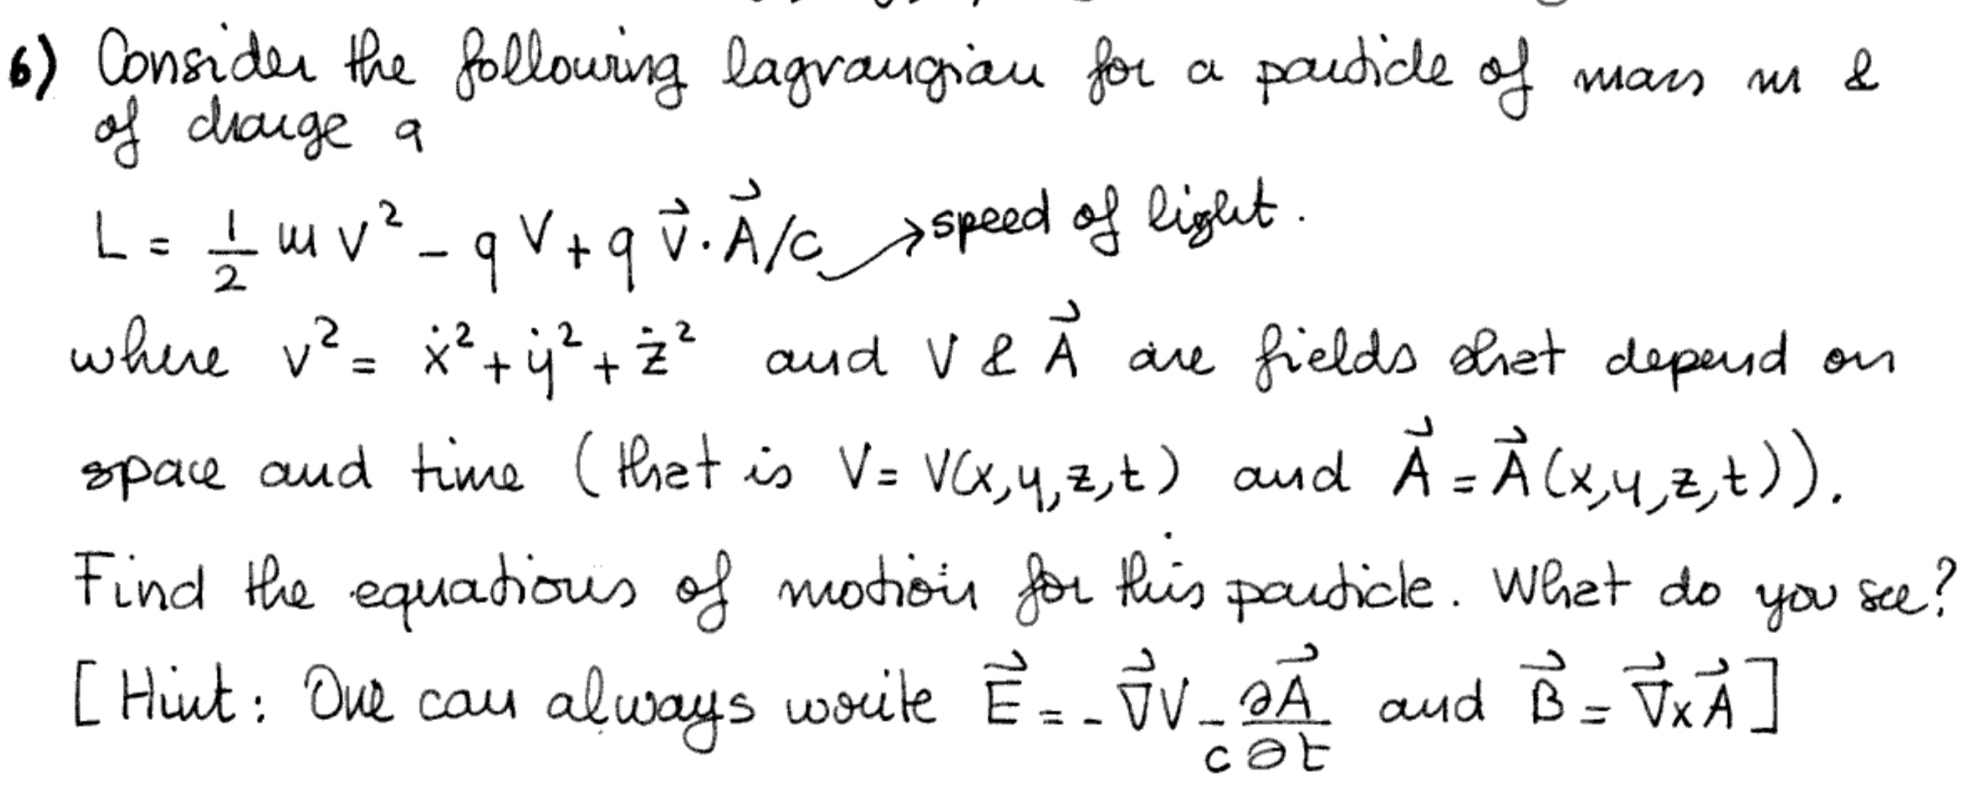 6) Consider the following lagrangian for a particle of mass m &
of charge q
L = 1/2 m v² - q V + q v⃗·A⃗/c → speed of light.
where v² = ẋ² + ẏ² + ż² and V & A⃗ are fields that depend on
space and time (that is V = V(x,y,z,t) and A⃗ = A⃗(x,y,z,t)).
Find the equations of motion for this particle. What do you see?
[Hint: One can always write E⃗ = - ∇⃗V - ∂A⃗/c∂t and B⃗ = ∇⃗xA⃗]